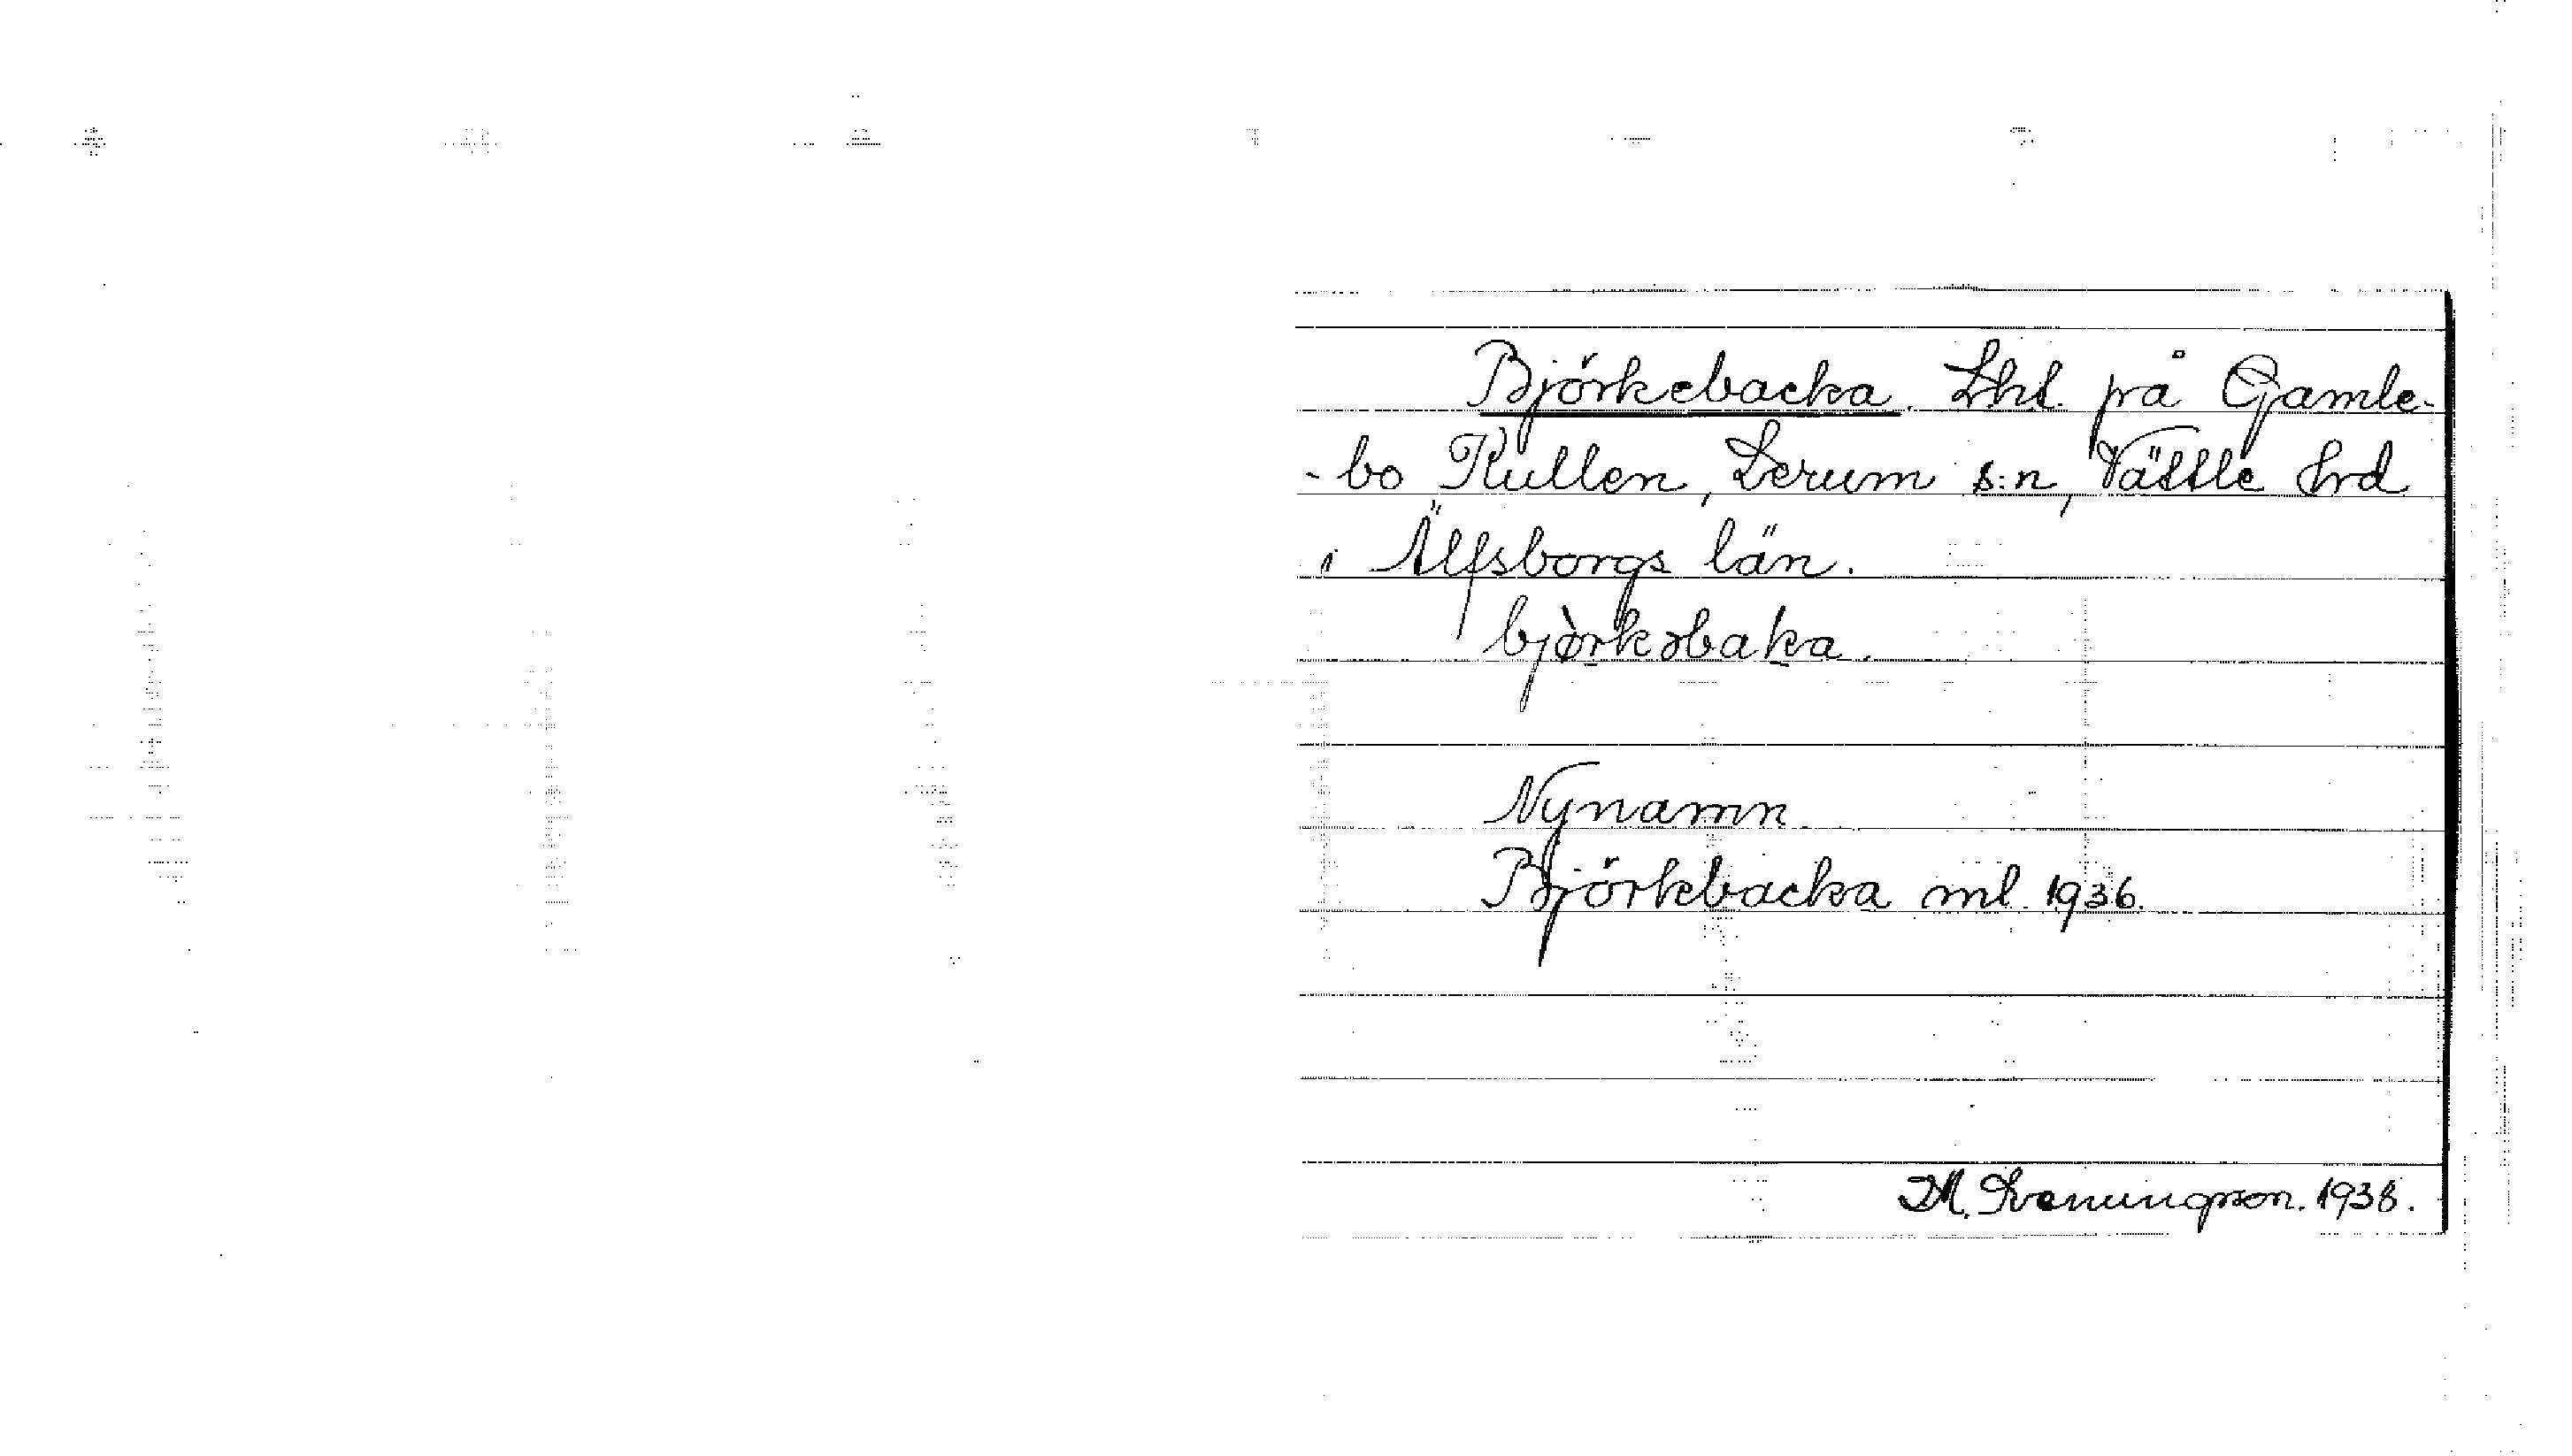 Björkebacka. Lhl. på Gamle-
- bo Kullen, Lerum s:n, Vättle hrd
i Älfsborgs län.
bjòrkəbaka.
Nynamn
Björkbacka ml. 1936.
M. Sveningsson. 1938.